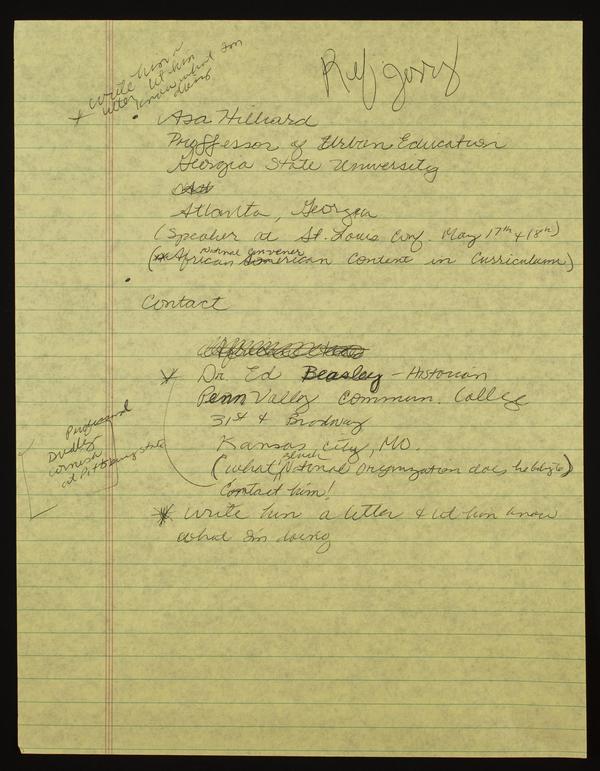 * Write him a
letter let him
know what I'm
doing
Ref/Jerry
• Asa Hilliard
Proffessor of Urban Education
Georgia State University
Atlanta, Georgia
(Speaker at St. Louis Conf. May 17th & 18th)
National Convener
(African American Content in Curriculum)
• Contact
* Dr. Ed Beasley - Historian
Penn Valley Commun. College
31st & Brodway
Kansas City, MO.
(what Black National Organization does he belg to)
Contact him!
* Write him a letter & let him know
what I'm doing
Professional
Dudley
Cornish
at Pittsburg State